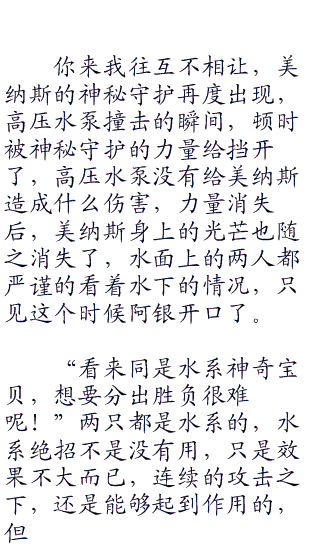 你来我往互不相让，美
纳斯的神秘守护再度出现，
高压水泵撞击的瞬间，顿时
被神秘守护的力量给挡开
了，高压水泵没有给美纳斯
造成什么伤害，力量消失
后，美纳斯身上的光芒也随
之消失了，水面上的两人都
严谨的看着水下的情况，只
见这个时候阿银开口了。
“看来同是水系神奇宝
贝，想要分出胜负很难
呢！”两只都是水系的，水
系绝招不是没有用，只是效
果不大而已，连续的攻击之
下，还是能够起到作用的，
但